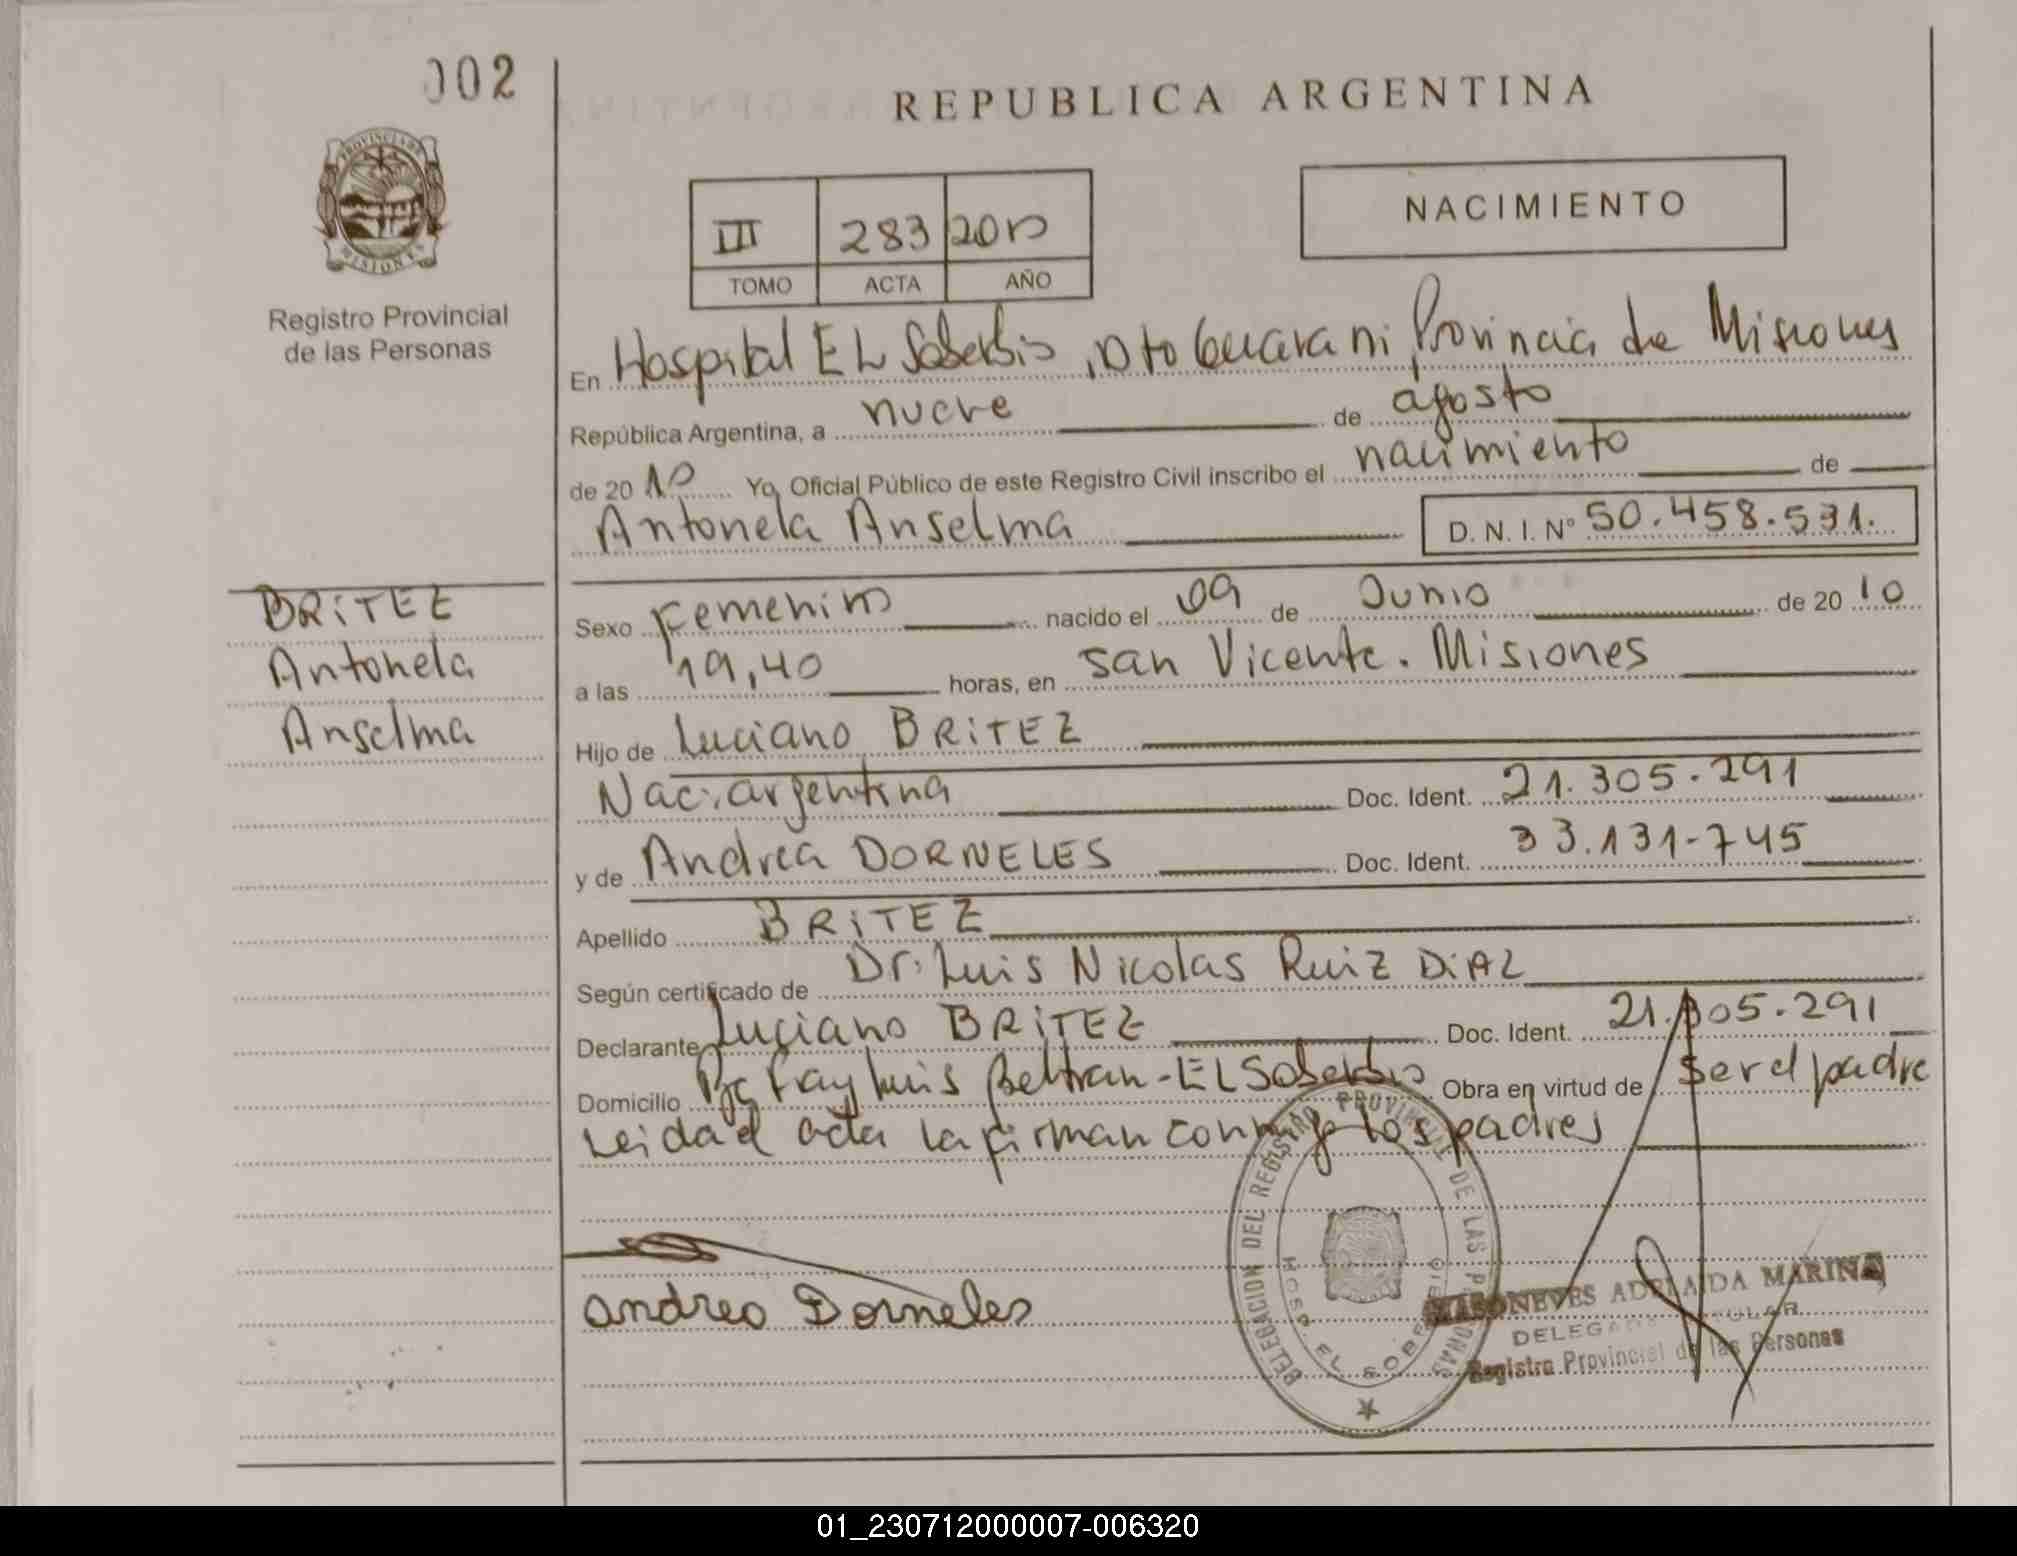 002
REPUBLICA ARGENTINA
PROVINCIA DE
MISIONES
Registro Provincial
de las Personas
III 283 2010
TOMO ACTA AÑO
NACIMIENTO
En Hospital EL Soberbio, Dto Guarani Provincia de Misiones
República Argentina, a nueve de agosto
de 2010 Yo Oficial Público de este Registro Civil inscribo el nacimiento de
Antonela Anselma D. N. I. Nº 50.458.531.
BRITEZ
Antonela
Anselma
Sexo Femenino nacido el 09 de Junio de 2010
a las 19,40 horas, en San Vicente. Misiones
Hijo de Luciano BRITEZ
Nac. argentina Doc. Ident. 21.305.291
y de Andrea DORNELES Doc. Ident. 33.131-745
Apellido BRITEZ
Según certificado de Dr. Luis Nicolas Ruiz DIAZ
Declarante Luciano BRITEZ Doc. Ident. 21.305.291
Domicilio Fray Luis Beltran-EL Soberbio Obra en virtud de Ser el padre
Leida el acta la firman conmigo los padres
DELEGACION DEL REGISTRO PROVINCIAL DE LAS PERSONAS
HOSP. EL SOBERBIO
andrea Dorneles
ADELAIDA MARINA
DELEGADA TITULAR
Registro Provincial de las Personas
01_230712000007-006320